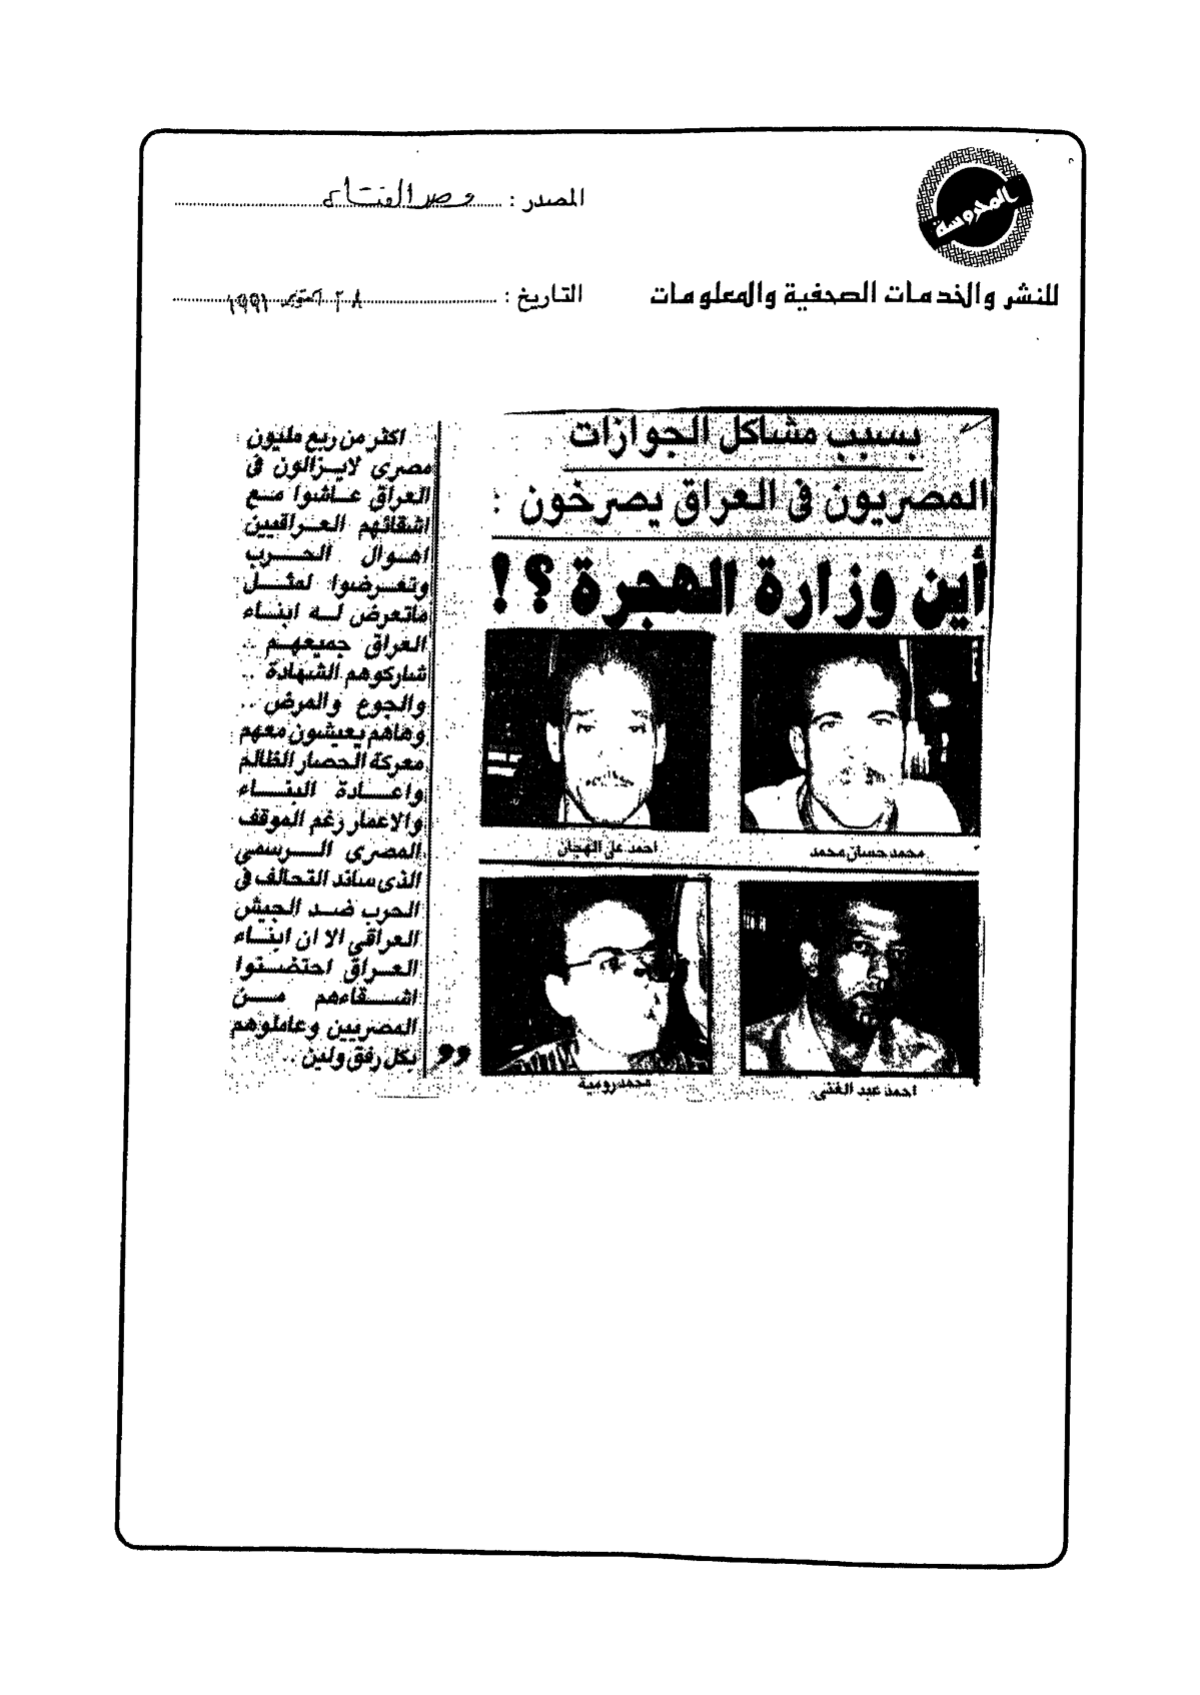 المحروسة
للنشر والخدمات الصحفية والمعلومات
المصدر : مصر الفتاة
التاريخ : ٢٨ أكتوبر ١٩٩١
بسبب مشاكل الجوازات
المصريون فى العراق يصرخون :
أين وزارة الهجرة ؟!
محمد حسان محمد
احمد على الهجان
احمد عبد الغنى
محمد رومية
اكثر من ربع مليون
مصرى لايزالون فى
العراق عاشوا مع
اشقائهم العراقيين
اهوال الحرب
وتعرضوا لمثل
ماتعرض له ابناء
العراق جميعهم ..
شاركوهم الشهادة ..
والجوع والمرض ..
وهاهم يعيشون معهم
معركة الحصار الظالم
واعادة البناء
والاعمار رغم الموقف
المصرى الرسمى
الذى ساند التحالف فى
الحرب ضد الجيش
العراقى الا ان ابناء
العراق احتضنوا
اشقاءهم من
المصريين وعاملوهم
بكل رفق ولين ..